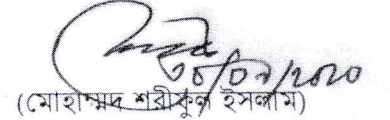 ৩০/০৭/২০২০
(মোহাম্মদ শরীকুল ইসলাম)